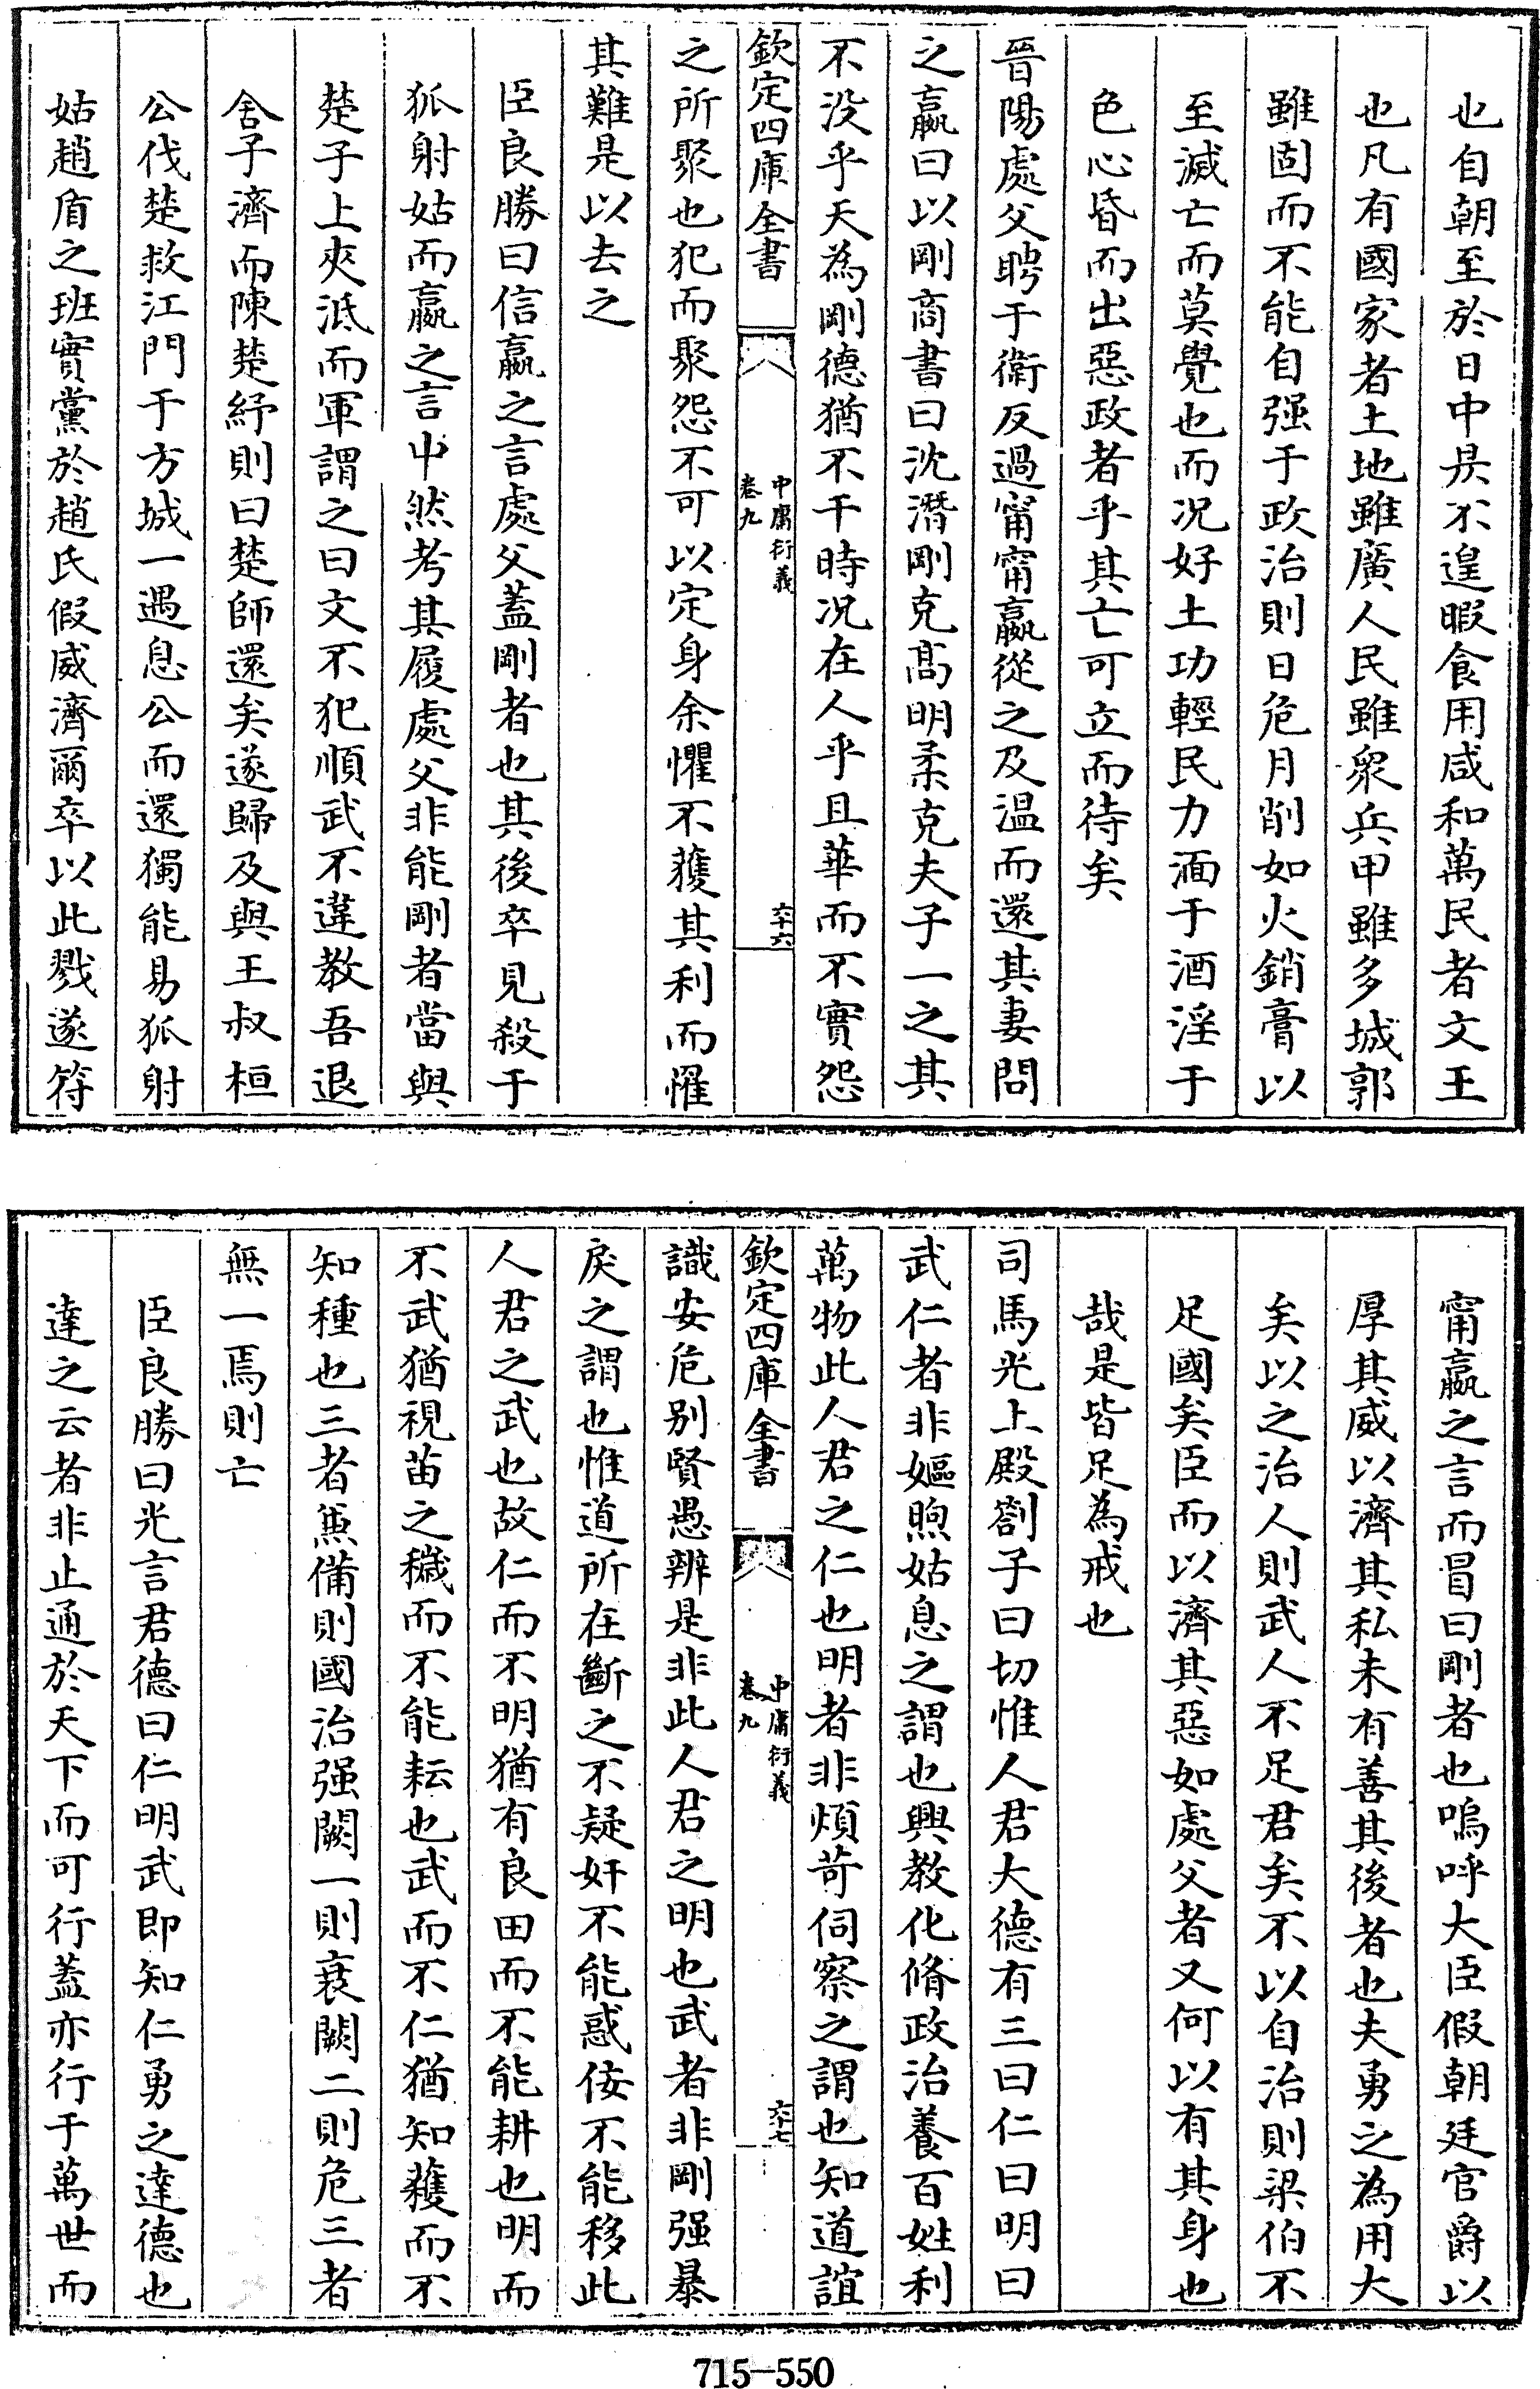 也自朝至於日中昃不遑暇食用咸和萬民者文王
也凡有國家者土地雖廣人民雖衆兵甲雖多城郭
雖固而不能自强于政治則日危月削如火銷膏以
至滅亡而莫覺也而况好土功輕民力湎于酒淫于
色心昏而出惡政者乎其亡可立而待矣
晉陽處父聘于衛反過甯甯嬴從之及温而還其妻問
之嬴曰以剛商書曰沈潛剛克髙明柔克夫子一之其
不没乎天為剛德猶不干時况在人乎且華而不實怨
欽定四庫全書
中庸衍義
卷九
六十六
之所聚也犯而聚怨不可以定身余懼不獲其利而懼
其難是以去之
臣良勝曰信嬴之言處父蓋剛者也其後卒見殺于
狐射姑而嬴之言中然考其履處父非能剛者當與
楚子上夾泜而軍謂之曰文不犯順武不違教吾退
舍子濟而陳楚紓則曰楚師還矣遂歸及與王叔桓
公伐楚救江門于方城一遇息公而還獨能易狐射
姑趙盾之班實黨於趙氏假威濟爾卒以此戮遂符
甯嬴之言而冒曰剛者也嗚呼大臣假朝廷官爵以
厚其威以濟其私未有善其後者也夫勇之為用大
矣以之治人則武人不足君矣不以自治則梁伯不
足國矣臣而以濟其惡如處父者又何以有其身也
哉是皆足為戒也
司馬光上殿劄子曰切惟人君大德有三曰仁曰明曰
武仁者非嫗煦姑息之謂也興教化脩政治養百姓利
萬物此人君之仁也明者非煩苛伺察之謂也知道誼
欽定四庫全書
中庸衍義
卷九
六十七
識安危别賢愚辨是非此人君之明也武者非剛强暴
戾之謂也惟道所在斷之不疑奸不能惑佞不能移此
人君之武也故仁而不明猶有良田而不能耕也明而
不武猶視苗之穢而不能耘也武而不仁猶知穫而不
知種也三者兼備則國治强闕一則衰闕二則危三者
無一焉則亡
臣良勝曰光言君德曰仁明武即知仁勇之達德也
達之云者非止通於天下而可行蓋亦行于萬世而
715-550